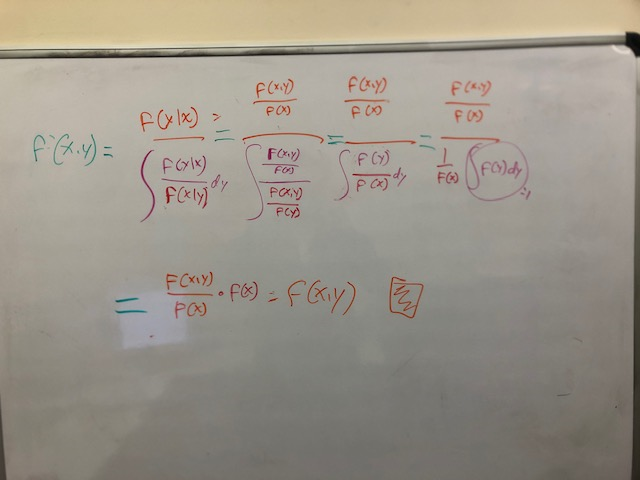 F(x,y) = F(y|x) / ∫ F(y|x)/F(x|y) dy = F(x,y)/F(x) / ∫ F(x,y)/F(x) / F(x,y)/F(y) = F(x,y)/F(x) / ∫ F(y)/F(x) dy = F(x,y)/F(x) / 1/F(x) ∫ F(y) dy =1
= F(x,y)/F(x) · F(x) = F(x,y)